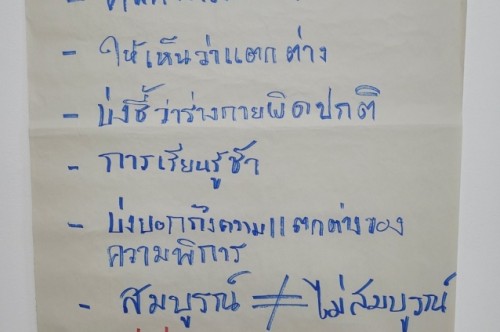 - ให้เห็นว่าแตกต่าง
- บ่งชี้ว่าร่างกายผิดปกติ
- การเรียนรู้ช้า
- บ่งบอกถึงความแตกต่างของ
ความพิการ
- สมบูรณ์ ≠ ไม่สมบูรณ์